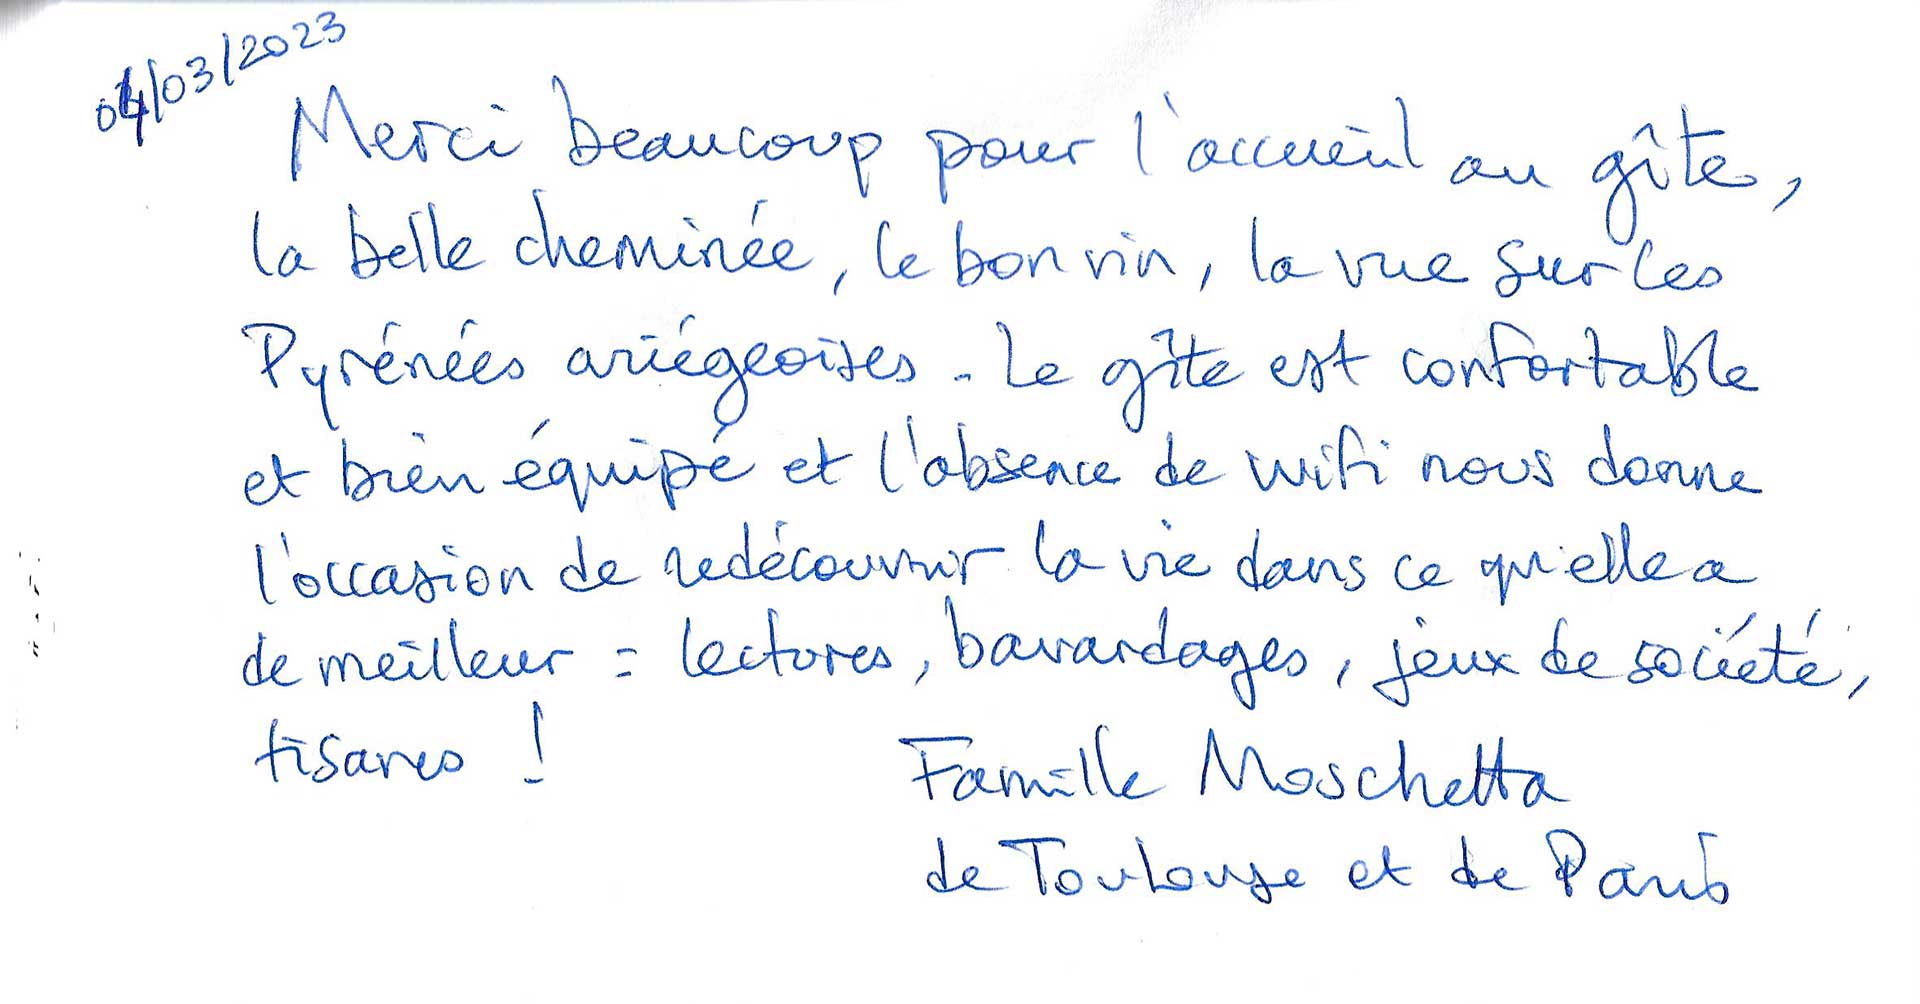 04/03/2023
Merci beaucoup pour l'accueil au gîte,
la belle cheminée, le bon vin, la vue sur les
Pyrénées ariégeoises. Le gîte est confortable
et bien équipé et l'absence de wifi nous donne
l'occasion de redécouvrir la vie dans ce qu'elle a
de meilleur : lectures, bavardages, jeux de société,
tisanes !
Famille Moschetta
de Toulouse et de Paris